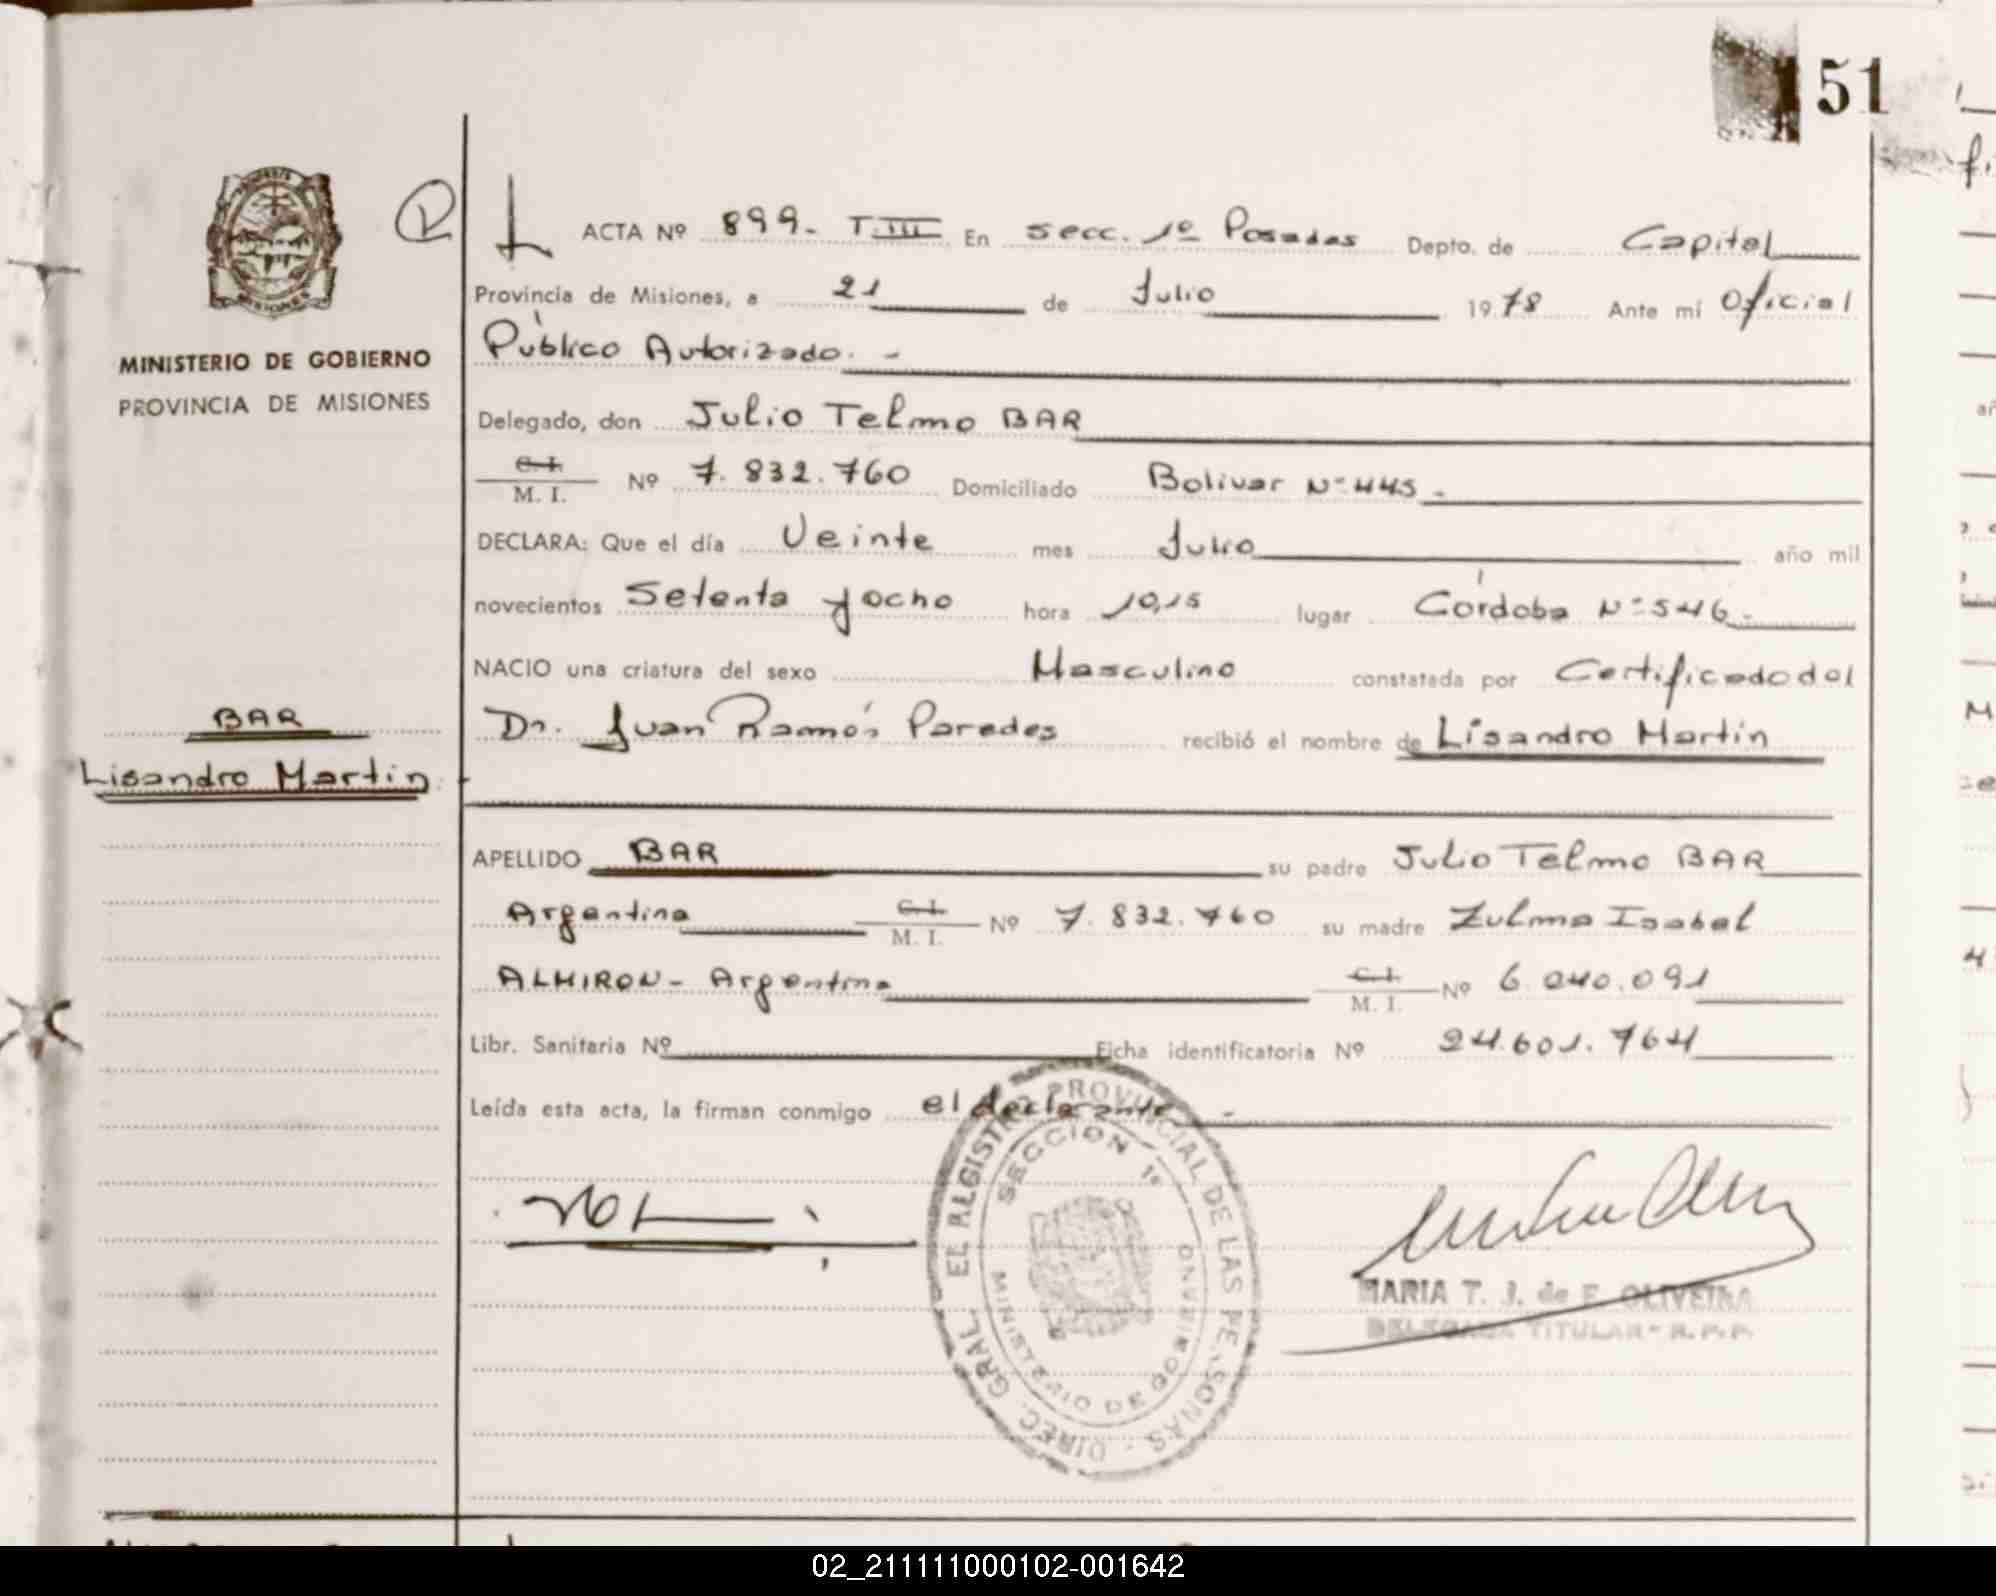 151
ACTA Nº 899.- T.III En Secc. 1º Posadas Depto. de Capital
Provincia de Misiones, a 21 de Julio 1978 Ante mí Oficial
Público Autorizado. -
MINISTERIO DE GOBIERNO
PROVINCIA DE MISIONES
Delegado, don Julio Telmo BAR
C. I.
M. I. Nº 7.832.760 Domiciliado Bolivar Nº 445.-
DECLARA: Que el día Veinte mes Julio año mil
novecientos Setenta y ocho hora 10,15 lugar Córdoba Nº 546.-
NACIO una criatura del sexo Masculino constatada por Certificado del
Dr. Juan Ramón Paredes recibió el nombre de Lisandro Martín
BAR
Lisandro Martín
APELLIDO BAR su padre Julio Telmo BAR
Argentina C. I. M. I. Nº 7.832.760 su madre Zulma Isabel
ALMIRON- Argentina C. I. M. I. Nº 6.040.091
Libr. Sanitaria Nº Ficha identificatoria Nº 24.601.764
Leída esta acta, la firman conmigo el declarante -
DIREC. GRAL. EL REGISTRO PROVINCIAL DE LAS PERSONAS -
SECCION 1º
MINISTERIO DE GOBIERNO
MARIA T. J. de F. OLIVEIRA
DELEGADA TITULAR - R. P. P.
02_211111000102-001642